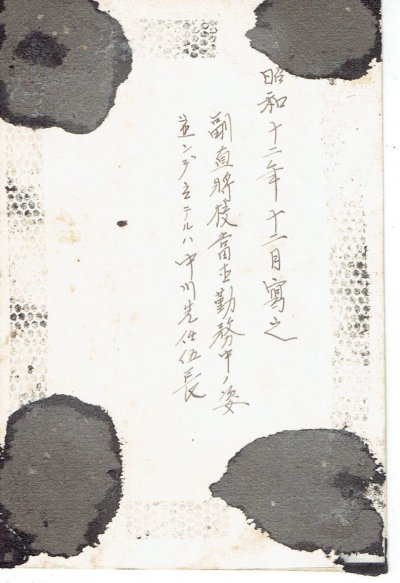 昭和十二年十一月寫之
副直將校當直勤務中ノ姿
並ンデ立テルハ中川先任伍長